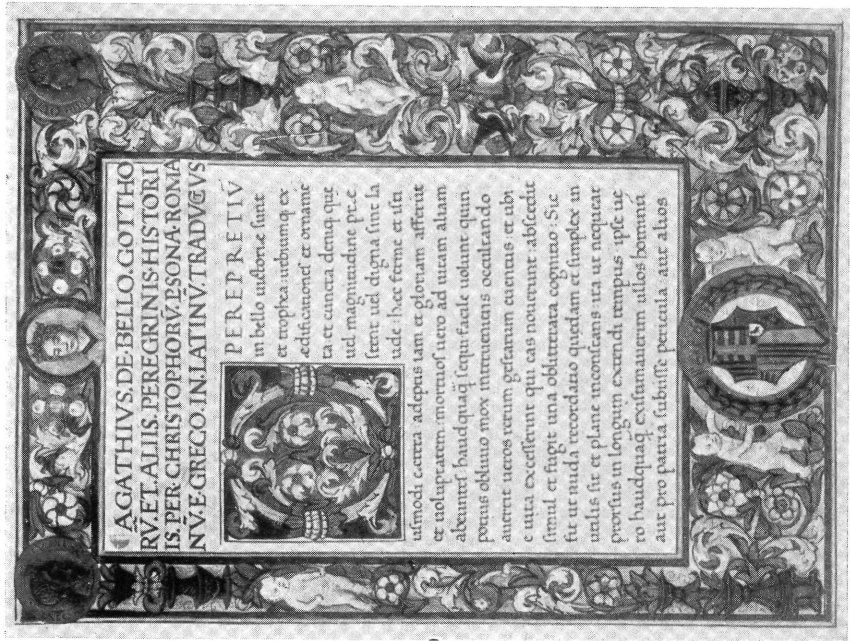 AGATHIVS.DE.BELLO.GOTTHO
RV.ET.ALIIS.PEREGRINIS.HISTORI
IS.PER.CHRISTOPHORV.PSONA.ROMA
NV.E.GRECO.IN.LATINV.TRADVCTVS
PEREPRETIV
in bello uictoriæ sunt
et trophea: urbiumq; ex
ædificationes et ornamē
ta et cuncta deniq; que
uel magnitudine præ
sient uel digna sint la
ude. hæc ferme et isti
usmodi cætera adeptis tam et gloriam afferūt
et uoluptatem mortuos uero ad uitam aliam
abeuntes haudquaq̃ sequi facile uolunt quin
potius obliuio mox interueniens occultando
auertit ueros rerum gestarum euentus: et ubi
e uita excesserint qui eas nouerunt: abscedit
simul et fugit una obliterata cognitio: Sic
fit ut nuda recordatio quędam et simplex in
utilis sit et plane inconstans: ita ut nequeat
prorsus in longum extendi tempus. ipse ue
ro haudquaq̃ existimauerim ullos hominū
aut pro patria subiisse pericula aut alios